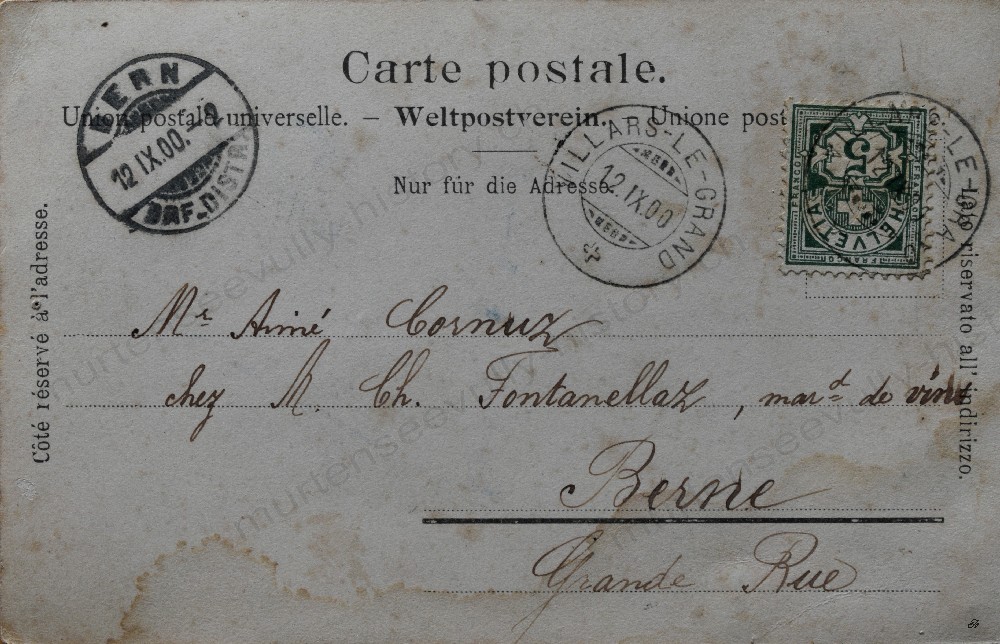 Carte postale.
Union postale universelle. – Weltpostverein. – Unione post
Nur für die Adresse.
BERN
12.IX.00.
BRF_DISTR.
VILLARS-LE-GRAND
12.IX.00
5
FRANCO
HELVETIA
Côté réservé à l'adresse.
Lato riservato all'indirizzo.
Mr Aimé Cornuz
chez M. Ch. Fontanellaz, mard de vins
Berne
Grande Rue
murtenseevully.history